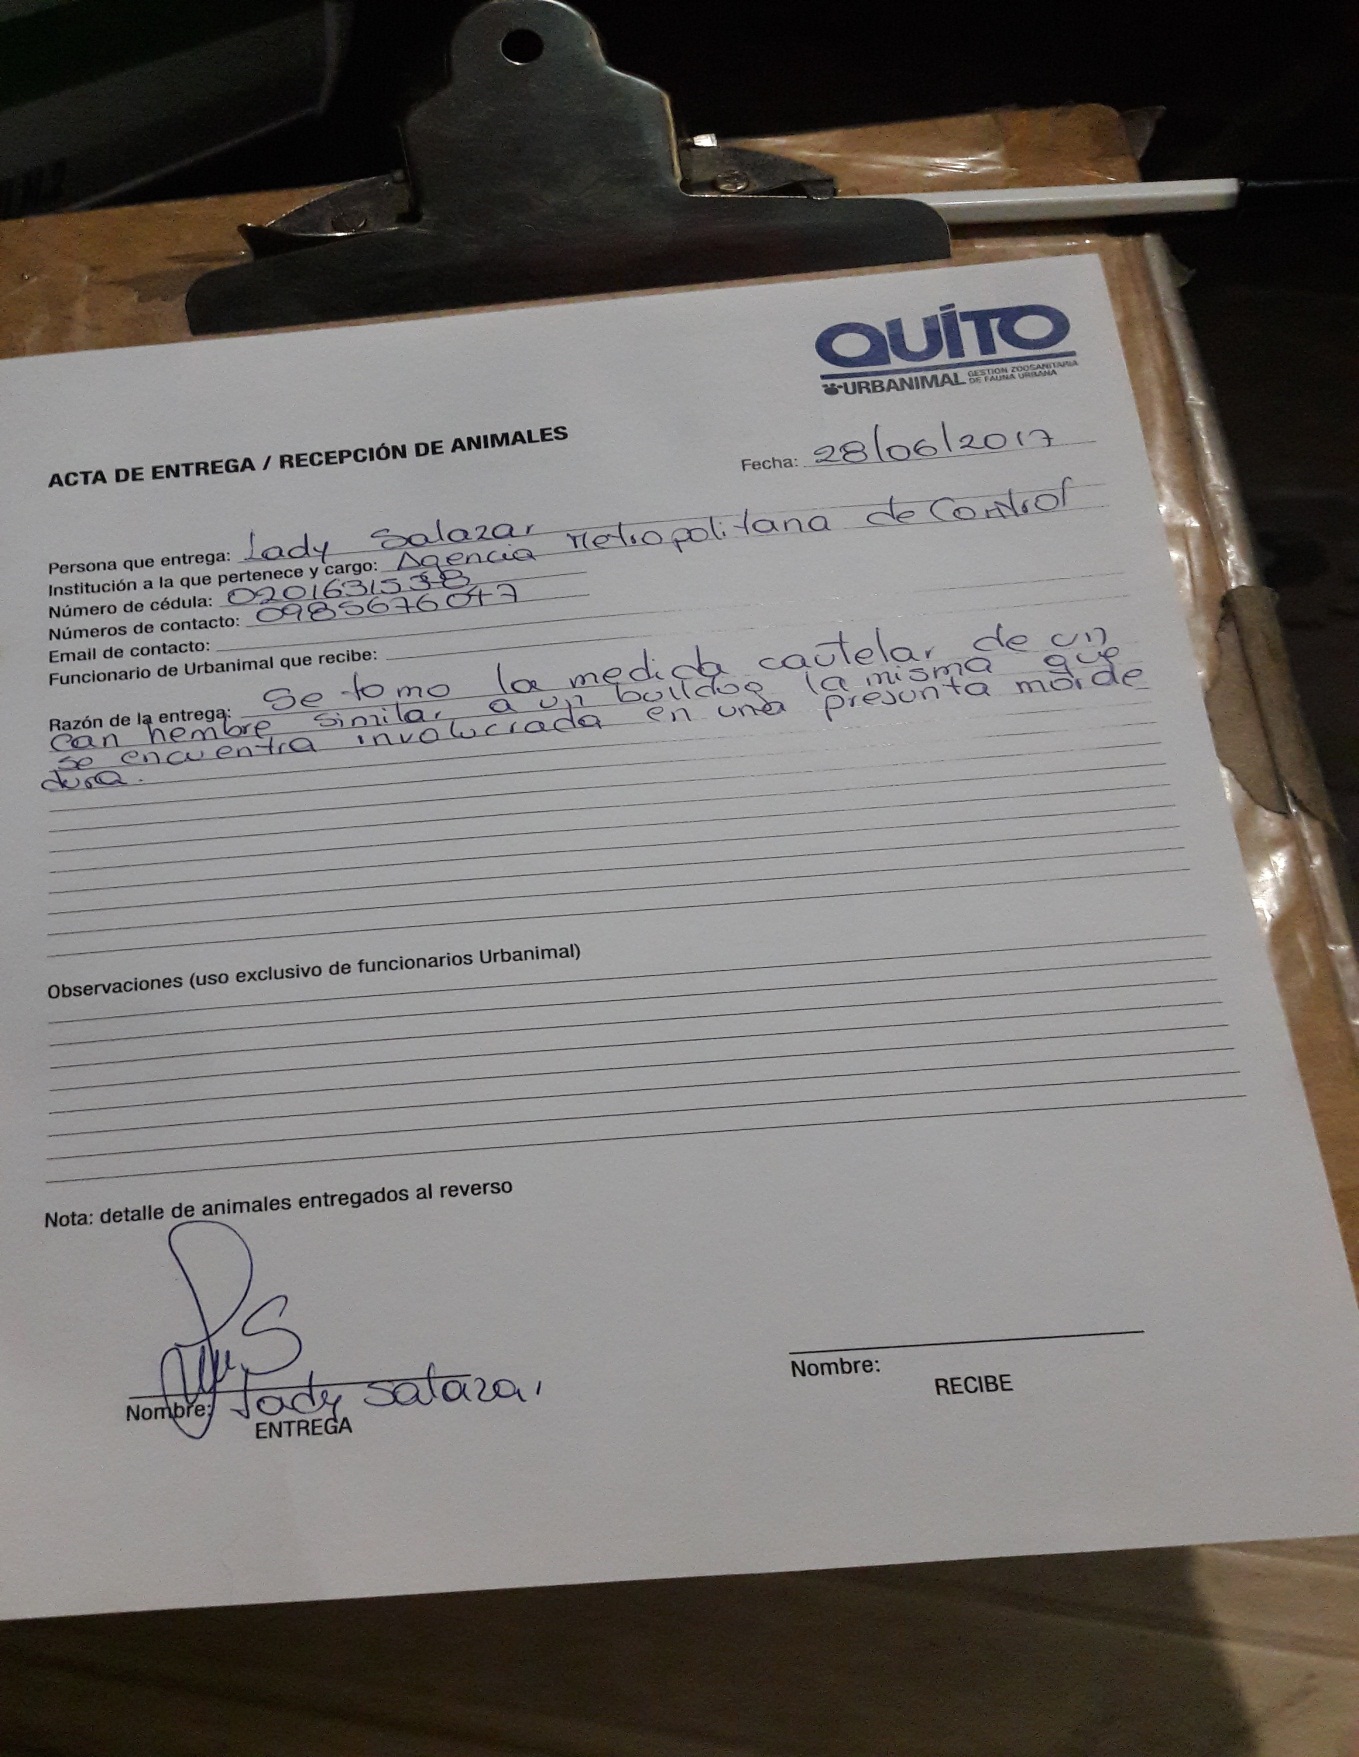 QUITO
URBANIMAL GESTIÓN ZOOSANITARIA
DE FAUNA URBANA
ACTA DE ENTREGA / RECEPCIÓN DE ANIMALES
Fecha: 28/06/2017
Persona que entrega: Lady Salazar
Institución a la que pertenece y cargo: Agencia Metropolitana de Control
Número de cédula: 0201631538
Números de contacto: 0985676047
Email de contacto:
Funcionario de Urbanimal que recibe:
Razón de la entrega: Se tomo la medida cautelar de un
can hembre similar a un bulldog la misma que
se encuentra involucrada en una presunta morde
dura.
Observaciones (uso exclusivo de funcionarios Urbanimal)
Nota: detalle de animales entregados al reverso
Nombre: Lady Salazar
ENTREGA
Nombre:
RECIBE